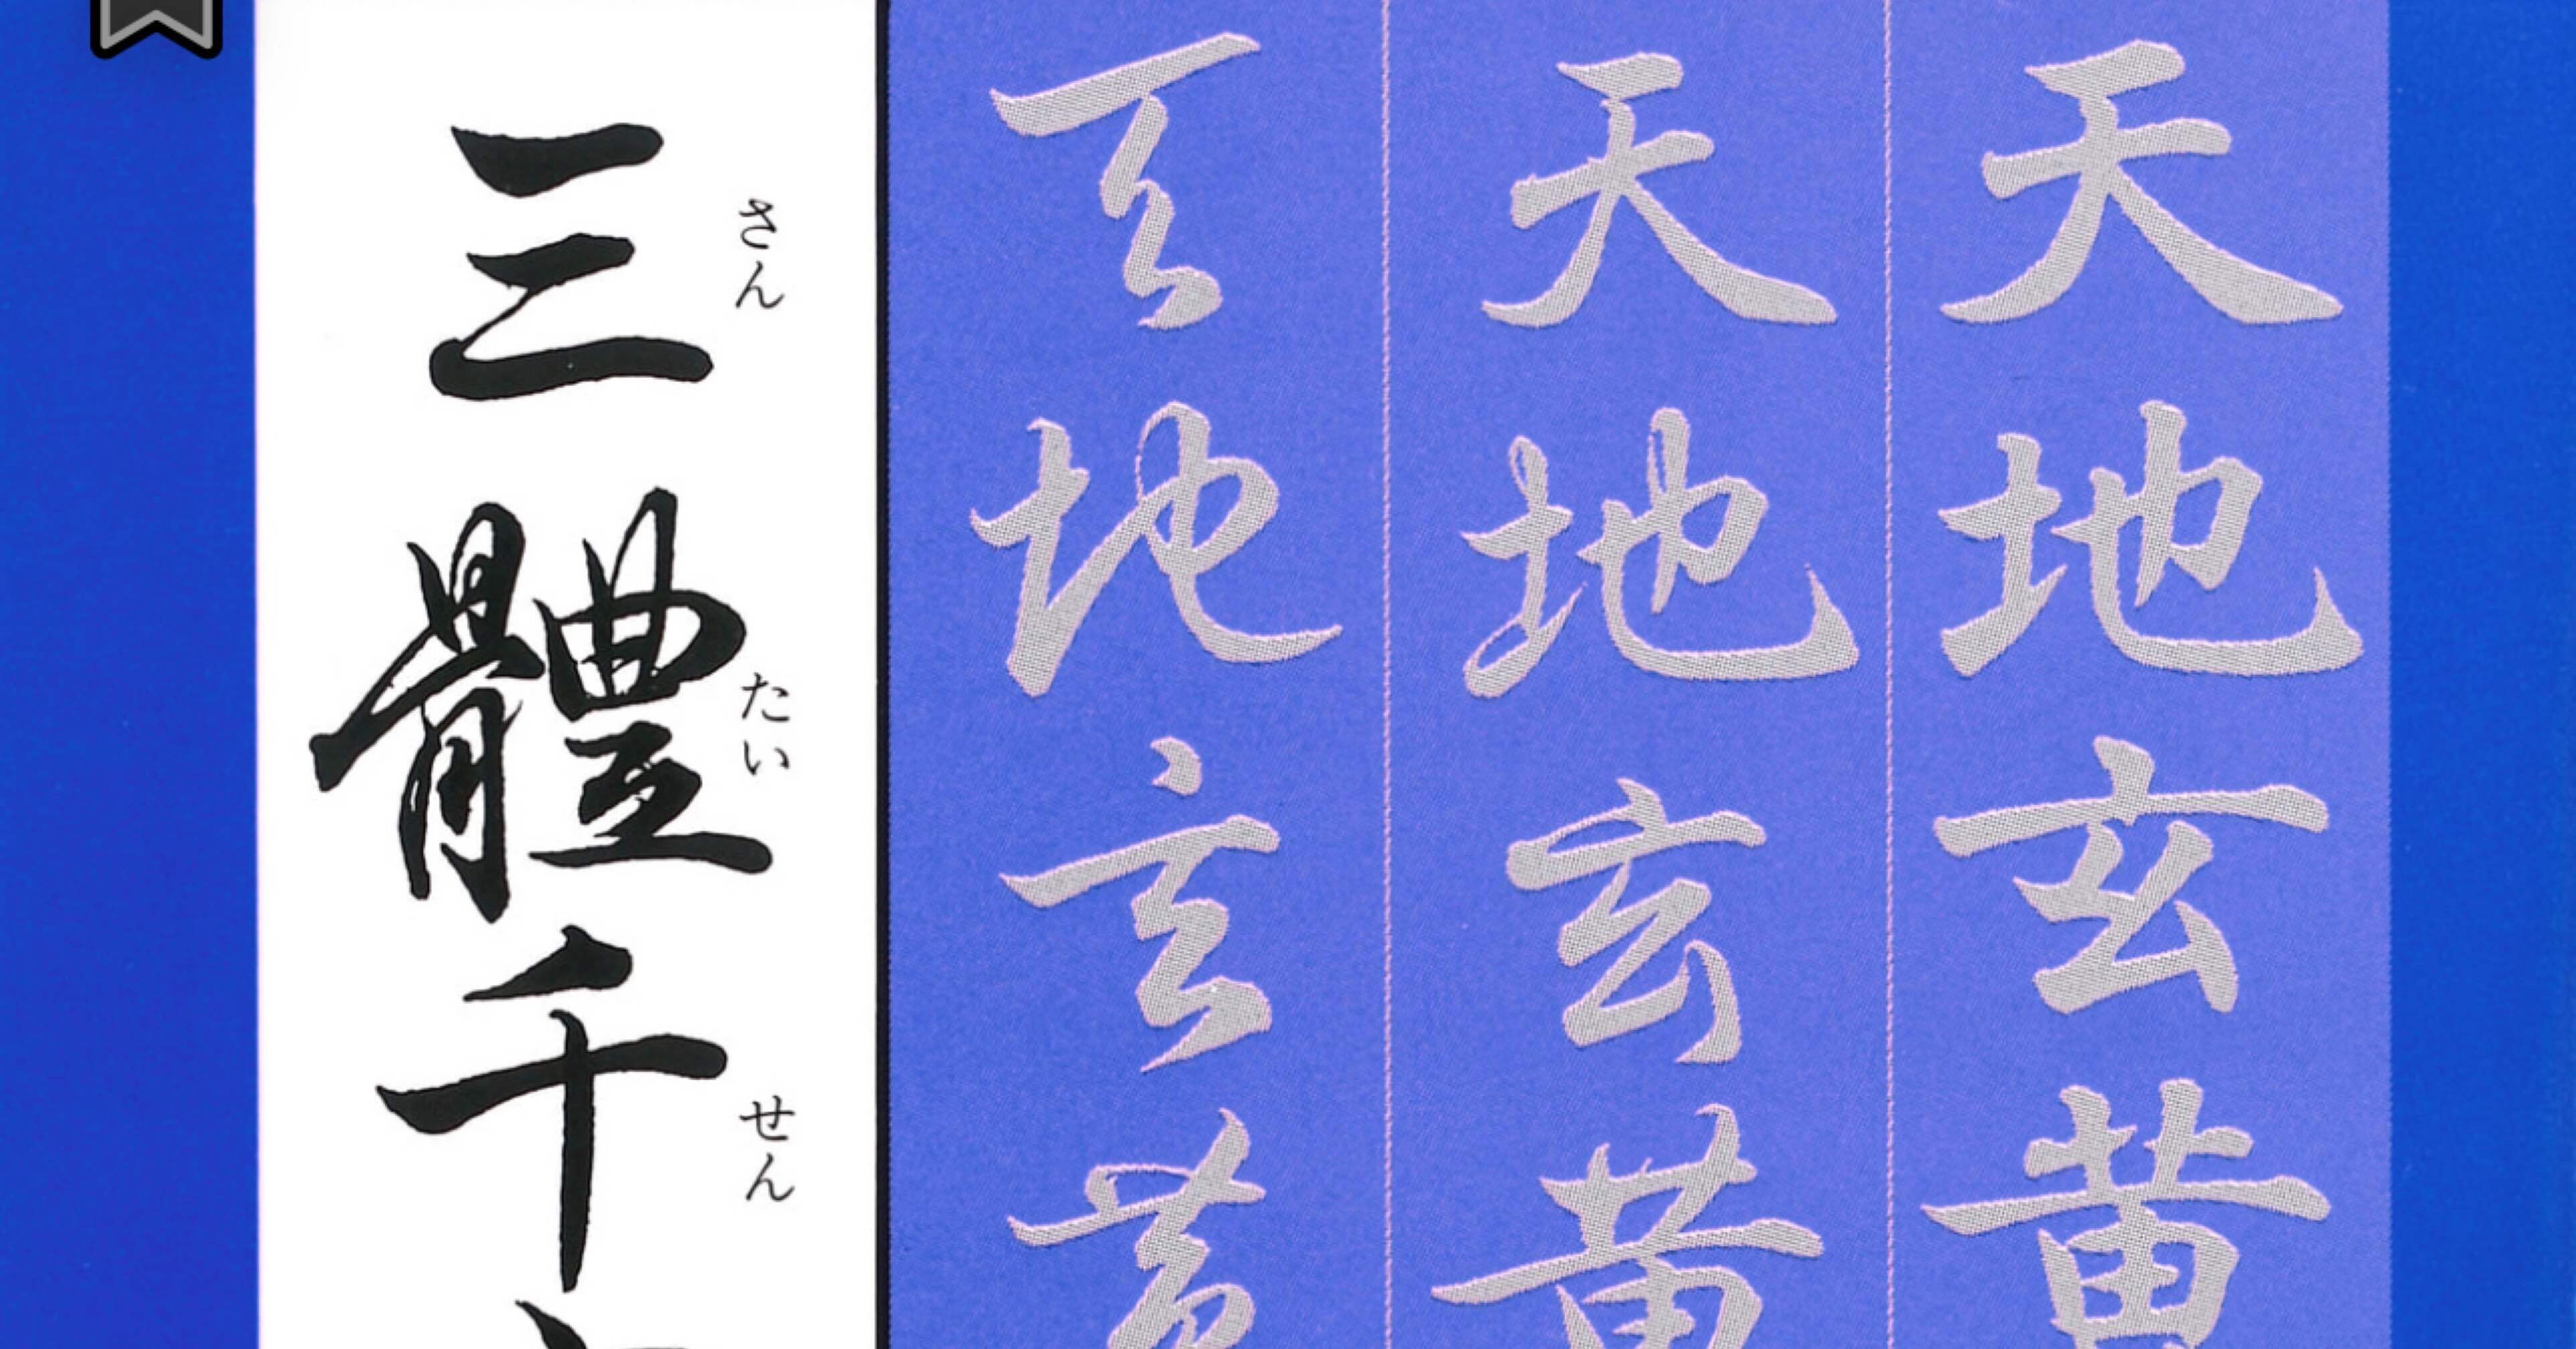 天地玄黄
天地玄黄
天地玄黄
三體千
さん たい せん